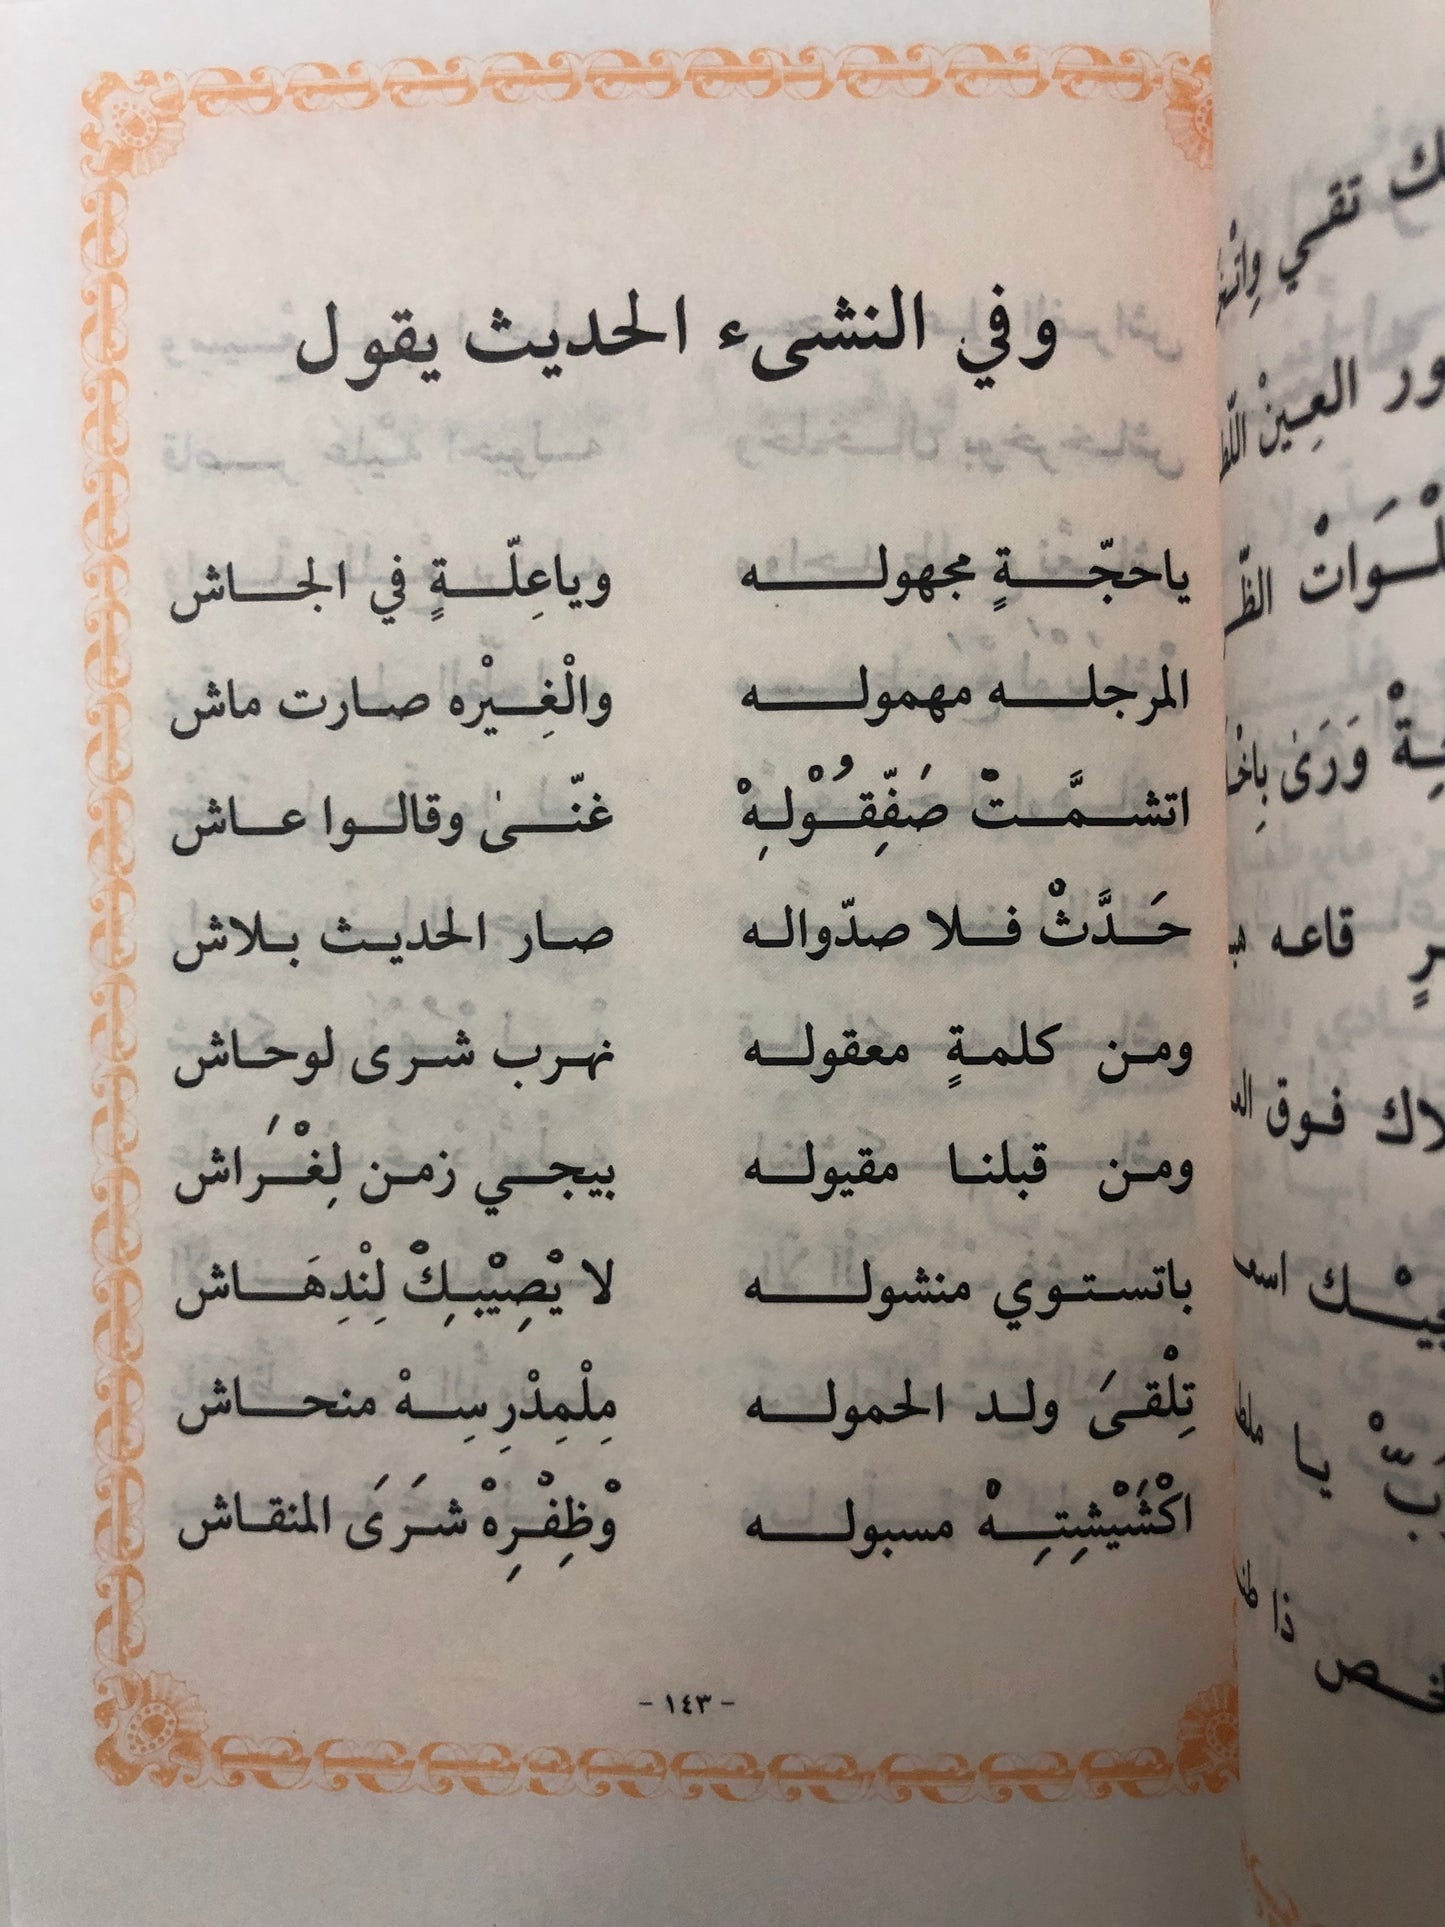 وفي النشىء الحديث يقول
ياحجّةٍ مجهوله وياعِلّةٍ في الجاش
المرجله مهموله والْغِيْره صارت ماش
اتشمَّتْ صَفِّقُوْلِهْ غنّىٰ وقالوا عاش
حَدَّثْ فلا صدّواله صار الحديث بلاش
ومن كلمةٍ معقوله نهرب شرى لوحاش
ومن قبلنا مقيوله بيجي زمن لِغْرَاش
باتستوي منشوله لا يْصِيْبِكْ لِنْدِهَاش
تِلْقىَ ولد الحموله مِلْمِدْرِسِهْ منحاش
اكْشَيْشِتِهْ مسبوله وْظِفْرِهْ شَرَىَ المنقاش
- ١٤٣ -
تقي
ور العِينْ
قاعه
فوق
يا
ذا